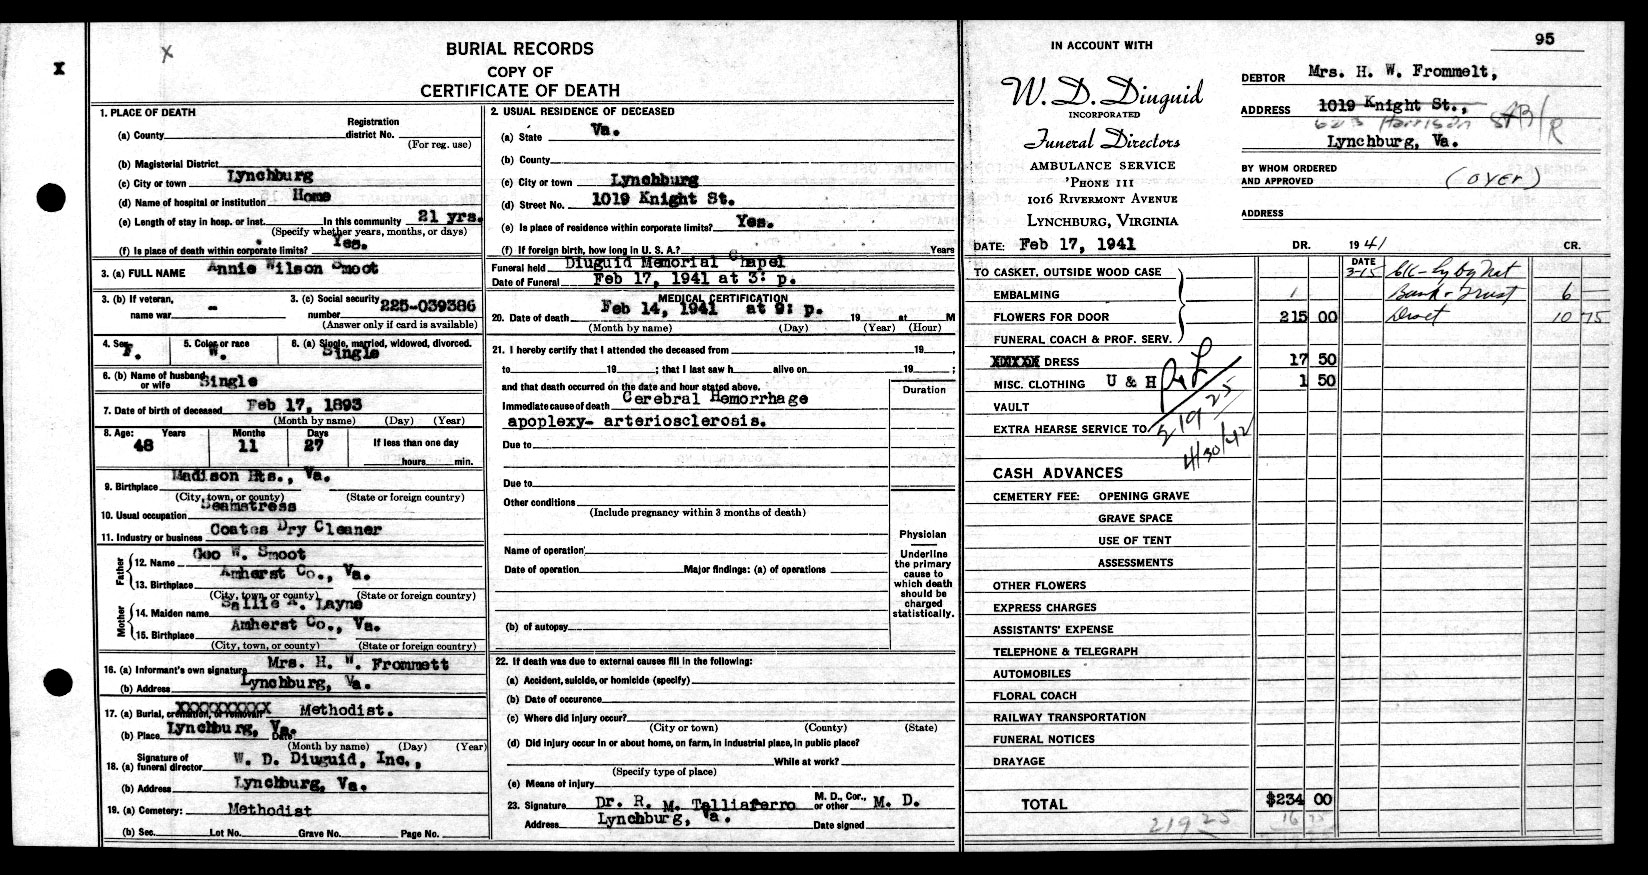 X
X
BURIAL RECORDS
COPY OF
CERTIFICATE OF DEATH
1. PLACE OF DEATH
(a) County
Registration district No.
(For reg. use)
(b) Magisterial District
(c) City or town Lynchburg
(d) Name of hospital or institution Home
(e) Length of stay in hosp. or inst. In this community 21 yrs.
(Specify whether years, months, or days)
(f) Is place of death within corporate limits? Yes.
3. (a) FULL NAME Annie Wilson Smoot
3. (b) If veteran, name war -
3. (c) Social security number 225-039386
(Answer only if card is available)
4. Sex F.
5. Color or race W.
6. (a) Single, married, widowed, divorced. Single
6. (b) Name of husband or wife Single
7. Date of birth of deceased Feb 17, 1893
(Month by name) (Day) (Year)
8. Age: Years 48 Months 11 Days 27 If less than one day
hours min.
9. Birthplace Madison Hts., Va.
(City, town, or county) (State or foreign country)
10. Usual occupation Seamstress
11. Industry or business Coates Dry Cleaner
Father
12. Name Geo W. Smoot
13. Birthplace Amherst Co., Va.
(City, town, or county) (State or foreign country)
Mother
14. Maiden name Sallie A. Layne
15. Birthplace Amherst Co., Va.
(City, town, or county) (State or foreign country)
16. (a) Informant's own signature Mrs. H. W. Frommett
(b) Address Lynchburg, Va.
17. (a) Burial, cremation, or removal XXXXXXXXXX Methodist.
(b) Place Lynchburg, Va. Date
(Month by name) (Day) (Year)
18. (a) Signature of funeral director W. D. Diuguid, Inc.,
(b) Address Lynchburg, Va.
19. (a) Cemetery: Methodist
(b) Sec. Lot No. Grave No. Page No.
2. USUAL RESIDENCE OF DECEASED
(a) State Va.
(b) County
(c) City or town Lynchburg
(d) Street No. 1019 Knight St.
(e) Is place of residence within corporate limits? Yes.
(f) If foreign birth, how long in U. S. A.? Years
Funeral held Diuguid Memorial Chapel
Date of Funeral Feb 17, 1941 at 3: p.
MEDICAL CERTIFICATION
20. Date of death Feb 14, 1941 at 9: p. 19 at M
(Month by name) (Day) (Year) (Hour)
21. I hereby certify that I attended the deceased from 19 ,
to 19 ; that I last saw h alive on 19 ;
and that death occurred on the date and hour stated above.
Immediate cause of death Cerebral Hemorrhage
apoplexy- arteriosclerosis.
Duration
Due to
Due to
Other conditions
(Include pregnancy within 3 months of death)
Name of operation
Date of operation Major findings: (a) of operations
(b) of autopsy
Physician
Underline the primary cause to which death should be charged statistically.
22. If death was due to external causes fill in the following:
(a) Accident, suicide, or homicide (specify)
(b) Date of occurence
(c) Where did injury occur?
(City or town) (County) (State)
(d) Did injury occur in or about home, on farm, in industrial place, in public place?
While at work?
(Specify type of place)
(e) Means of injury
23. Signature Dr. R. M. Talliaferro M. D., Cor., or other M. D.
Address Lynchburg, Va. Date signed
95
IN ACCOUNT WITH
W. D. Diuguid
INCORPORATED
Funeral Directors
AMBULANCE SERVICE
'PHONE 111
1016 RIVERMONT AVENUE
LYNCHBURG, VIRGINIA
DEBTOR Mrs. H. W. Frommelt,
ADDRESS 1019 Knight St.,
623 Harrison St
AB/R
Lynchburg, Va.
BY WHOM ORDERED AND APPROVED (over)
ADDRESS
DATE: Feb 17, 1941 DR. 1941 CR.
DATE
TO CASKET, OUTSIDE WOOD CASE 3-15 Ck-Lybg Nat
EMBALMING Bank & Trust 6 —
FLOWERS FOR DOOR 215 00 10 75
FUNERAL COACH & PROF. SERV.
XXXXXX DRESS 17 50
MISC. CLOTHING U & H 1 50
VAULT
EXTRA HEARSE SERVICE TO
219 25
4/30/42
CASH ADVANCES
CEMETERY FEE: OPENING GRAVE
GRAVE SPACE
USE OF TENT
ASSESSMENTS
OTHER FLOWERS
EXPRESS CHARGES
ASSISTANTS' EXPENSE
TELEPHONE & TELEGRAPH
AUTOMOBILES
FLORAL COACH
RAILWAY TRANSPORTATION
FUNERAL NOTICES
DRAYAGE
TOTAL $234 00
219 25 16 75